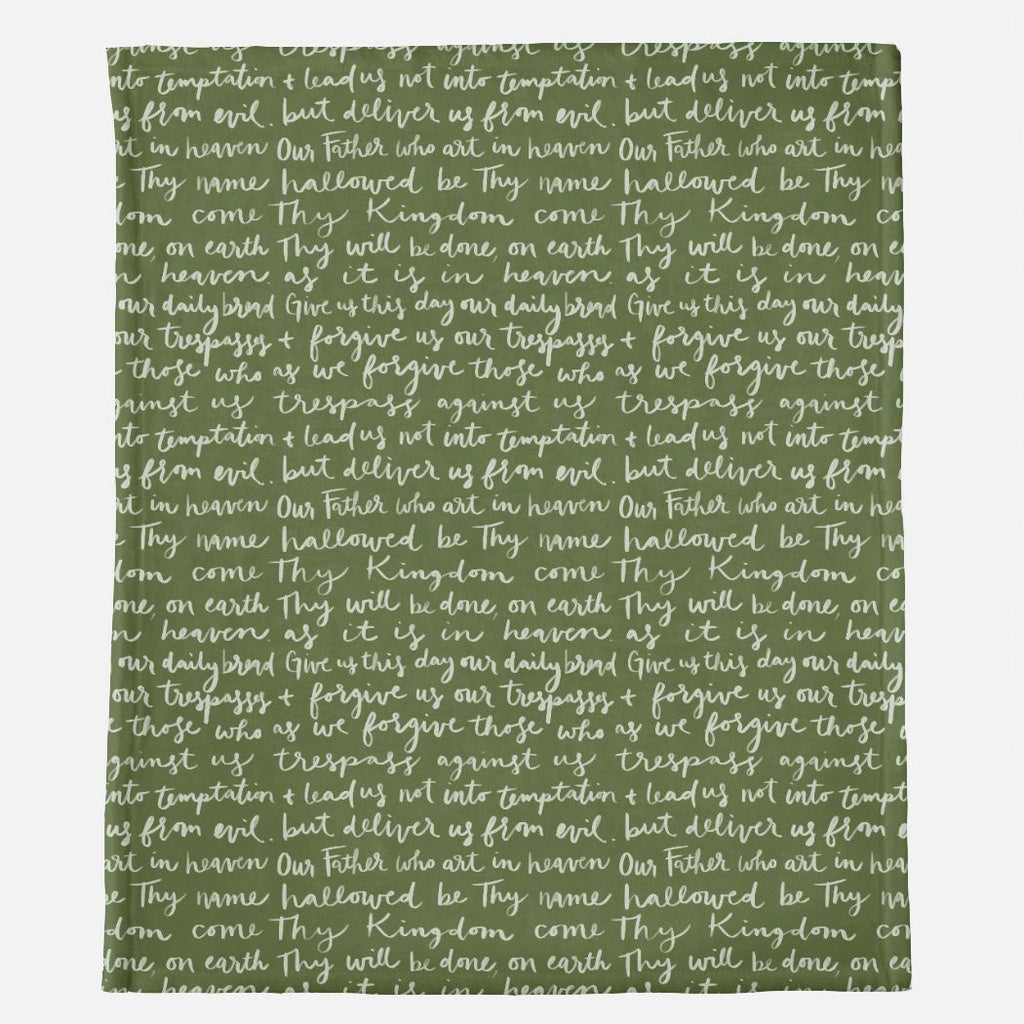 trespass against us trespass against
into temptation + lead us not into temptation + lead us not into tempt
us from evil. but deliver us from evil. but deliver us from
art in heaven Our Father who art in heaven Our Father who art in hea
Thy name hallowed be Thy name hallowed be Thy na
dom come Thy Kingdom come Thy Kingdom co
one, on earth Thy will be done, on earth Thy will be done, on ea
n heaven. as it is in heaven. as it is in heaven
our daily bread Give us this day our daily bread Give us this day our daily
our trespasses + forgive us our trespasses + forgive us our tresp
those who as we forgive those who as we forgive those
gainst us trespass against us trespass against u
nto temptation + lead us not into temptation + lead us not into tempt
us from evil. but deliver us from evil. but deliver us from
art in heaven Our Father who art in heaven Our Father who art in hea
e Thy name hallowed be Thy name hallowed be Thy na
dom come Thy Kingdom come Thy Kingdom co
one, on earth Thy will be done, on earth Thy will be done, on ea
n heaven. as it is in heaven. as it is in heaven
our daily bread Give us this day our daily bread Give us this day our daily
our trespasses + forgive us our trespasses + forgive us our tresp
e those who as we forgive those who as we forgive those
gainst us trespass against us trespass against us
into temptation + lead us not into temptation + lead us not into tempta
us from evil. but deliver us from evil. but deliver us from e
art in heaven Our Father who art in heaven Our Father who art in hea
be Thy name hallowed be Thy name hallowed be Thy na
dom come Thy Kingdom come Thy Kingdom com
done, on earth Thy will be done, on earth Thy will be done, on ea
in heaven. as it is in heaven. as it is in heaven